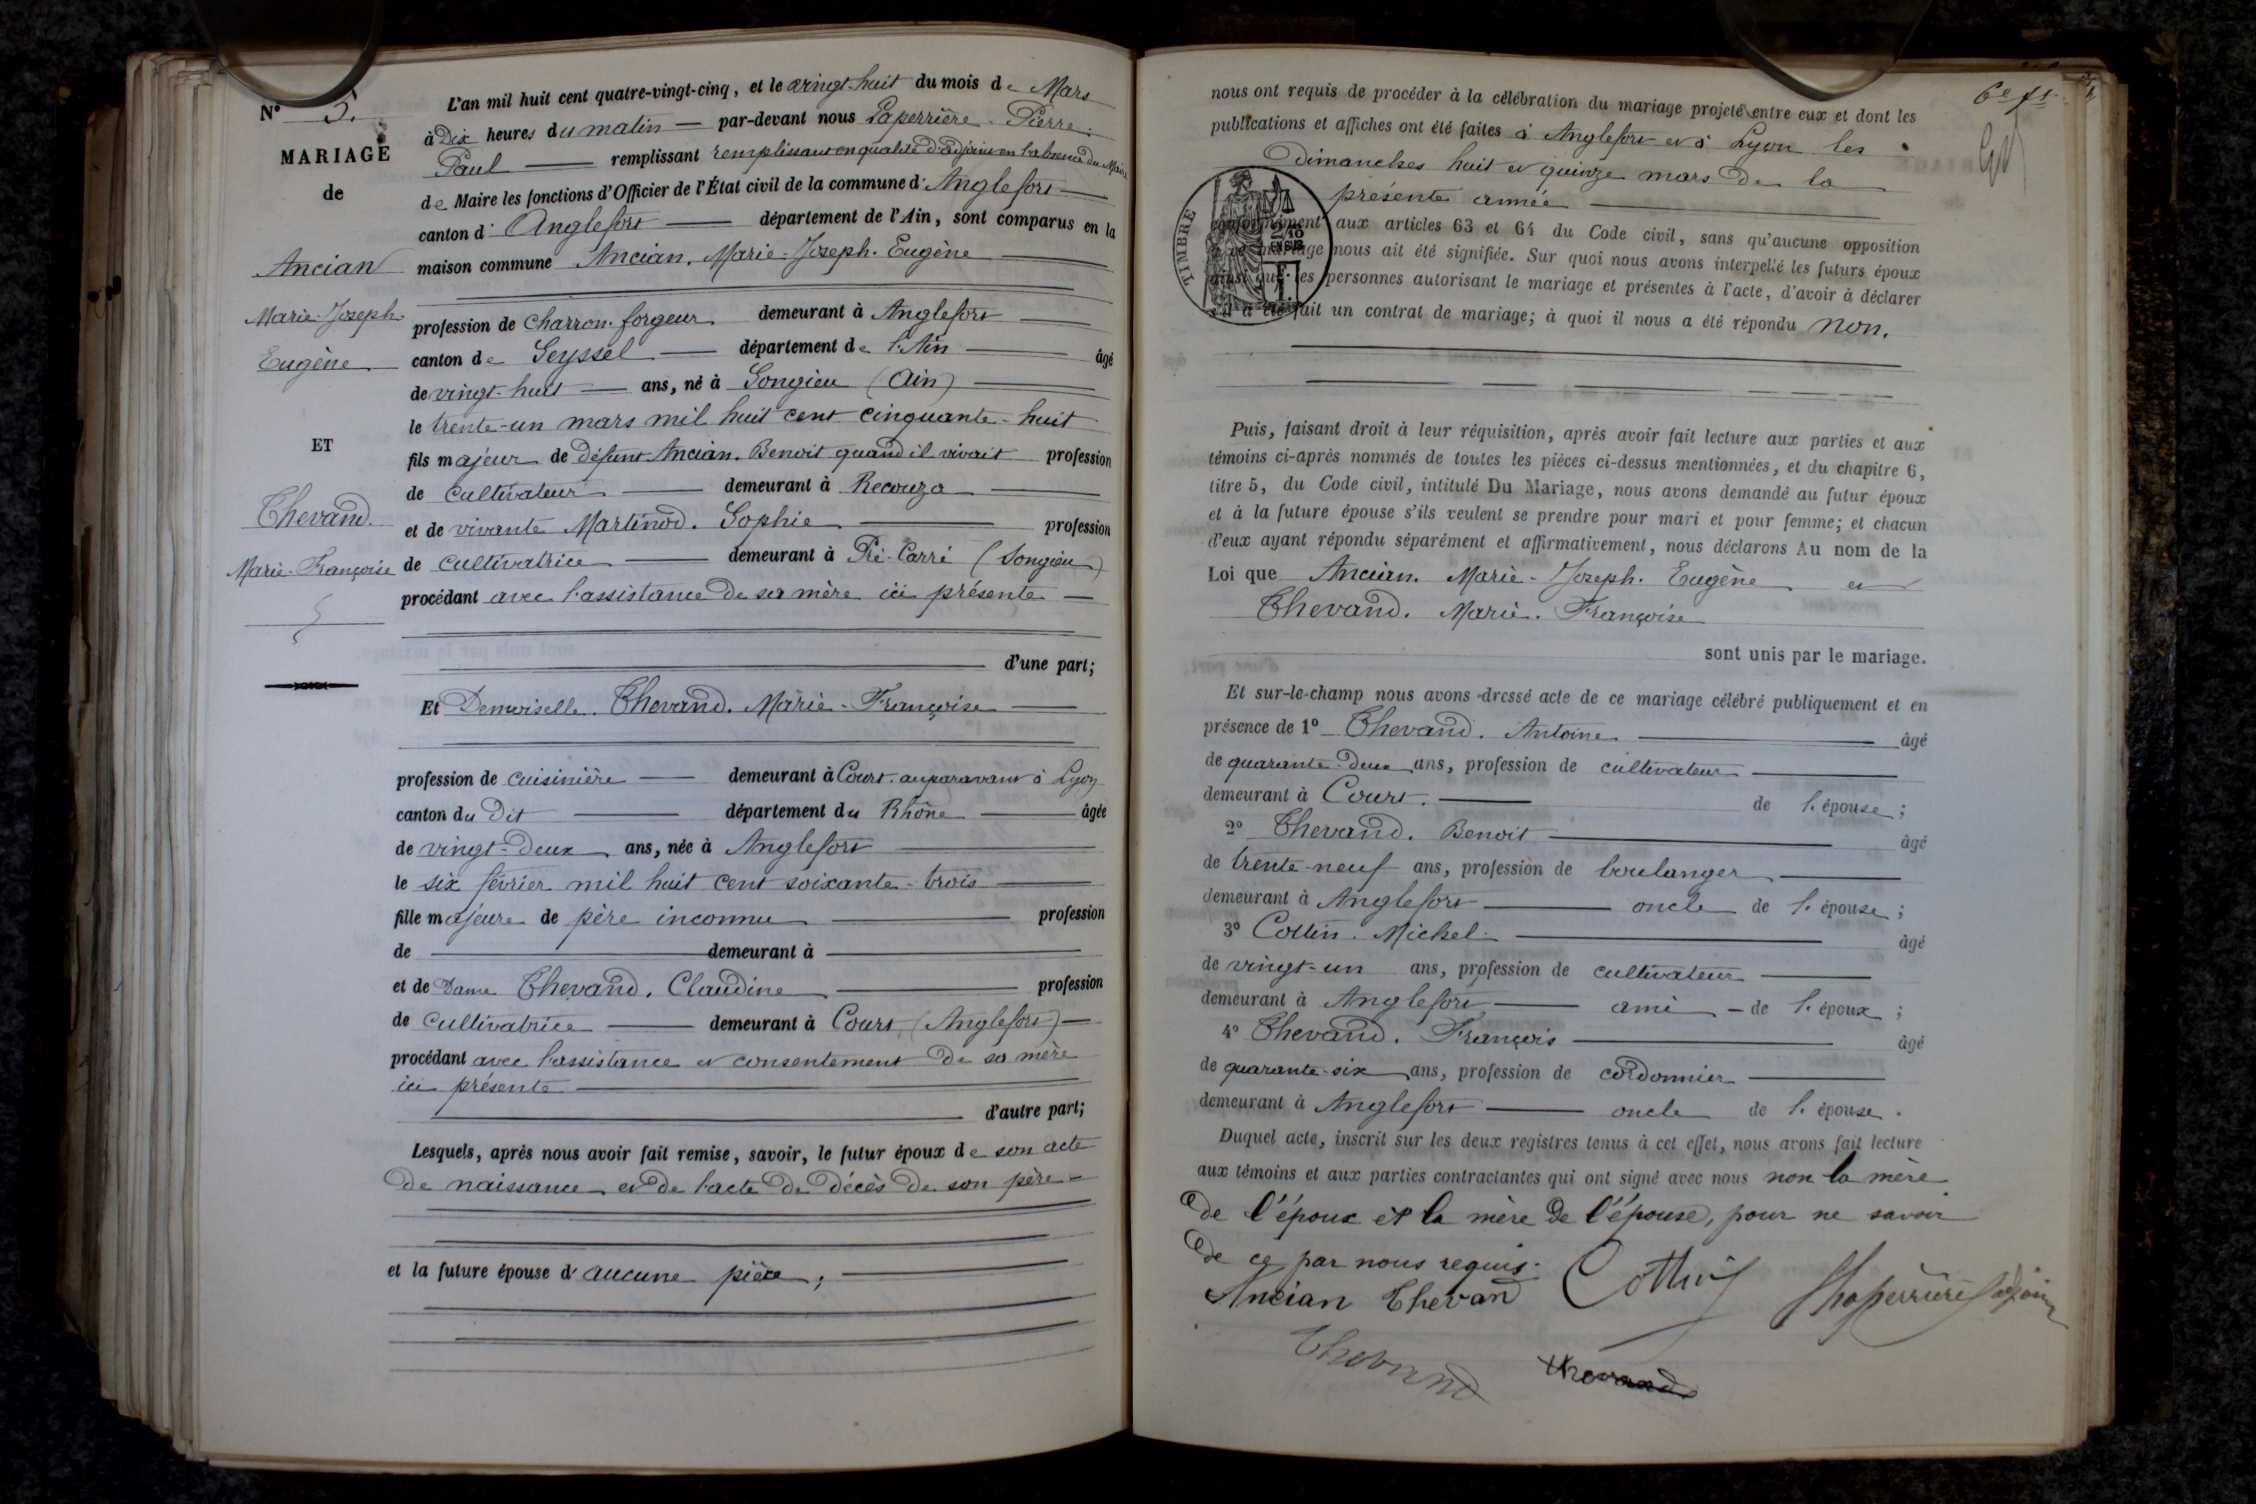 N° 5.
MARIAGE
de
Ancian
Marie-Joseph-
Eugène
ET
Thevand.
Marie-Françoise
L'an mil huit cent quatre-vingt-cinq, et le vingt-huit du mois de Mars
à Dix heures du matin par-devant nous Laperrière Pierre-
Paul remplissant remplissant en qualité d'adjoint en l'absence du Maire
de Maire les fonctions d'Officier de l'État civil de la commune d'Anglefort
canton d'Anglefort département de l'Ain, sont comparus en la
maison commune Ancian. Marie-Joseph-Eugène
profession de charron-forgeur demeurant à Anglefort
canton de Seyssel département de l'Ain âgé
de vingt-huit ans, né à Songieu (Ain)
le trente-un mars mil huit cent cinquante-huit
fils majeur de défunt Ancian. Benoit quand il vivait profession
de cultivateur demeurant à Recouza
et de vivante Martinod. Sophie profession
de cultivatrice demeurant à Pré-Carré (Songieu)
procédant avec l'assistance de sa mère ici présente
d'une part;
Et Demoiselle. Thevand. Marie-Françoise
profession de cuisinière demeurant à Court. auparavant à Lyon
canton du Dit département du Rhône âgée
de vingt-deux ans, née à Anglefort
le six février mil huit cent soixante-trois
fille majeure de père inconnu profession
de demeurant à
et de Dame Thevand. Claudine profession
de cultivatrice demeurant à Court (Anglefort)
procédant avec l'assistance et consentement de sa mère
ici présente
d'autre part;
Lesquels, après nous avoir fait remise, savoir, le futur époux de son acte
de naissance et de l'acte de décès de son père
et la future épouse d'aucune pièce;
6e ft.
nous ont requis de procéder à la célébration du mariage projeté entre eux et dont les
publications et affiches ont été faites à Anglefort et à Lyon les
dimanches huit et quinze mars de la
présente année
TIMBRE
conformément aux articles 63 et 64 du Code civil, sans qu'aucune opposition
à ce mariage nous ait été signifiée. Sur quoi nous avons interpellé les futurs époux
ainsi que les personnes autorisant le mariage et présentes à l'acte, d'avoir à déclarer
s'il a été fait un contrat de mariage; à quoi il nous a été répondu non.
Puis, faisant droit à leur réquisition, après avoir fait lecture aux parties et aux
témoins ci-après nommés de toutes les pièces ci-dessus mentionnées, et du chapitre 6,
titre 5, du Code civil, intitulé Du Mariage, nous avons demandé au futur époux
et à la future épouse s'ils veulent se prendre pour mari et pour femme; et chacun
d'eux ayant répondu séparément et affirmativement, nous déclarons Au nom de la
Loi que Ancian. Marie-Joseph-Eugène et
Thevand. Marie-Françoise
sont unis par le mariage.
Et sur-le-champ nous avons dressé acte de ce mariage célébré publiquement et en
présence de 1° Thevand. Antoine âgé
de quarante-deux ans, profession de cultivateur
demeurant à Court. de l'épouse;
2° Thevand. Benoit âgé
de trente-neuf ans, profession de boulanger
demeurant à Anglefort oncle de l'épouse;
3° Cottin. Michel. âgé
de vingt-un ans, profession de cultivateur
demeurant à Anglefort ami de l'époux;
4° Thevand. François âgé
de quarante-six ans, profession de cordonnier
demeurant à Anglefort oncle de l'épouse.
Duquel acte, inscrit sur les deux registres tenus à cet effet, nous avons fait lecture
aux témoins et aux parties contractantes qui ont signé avec nous non la mère
de l'époux et la mère de l'épouse, pour ne savoir
de ce par nous requis.
Ancian Thevand Cottin Laperrière adjoint
Thevand Thevand